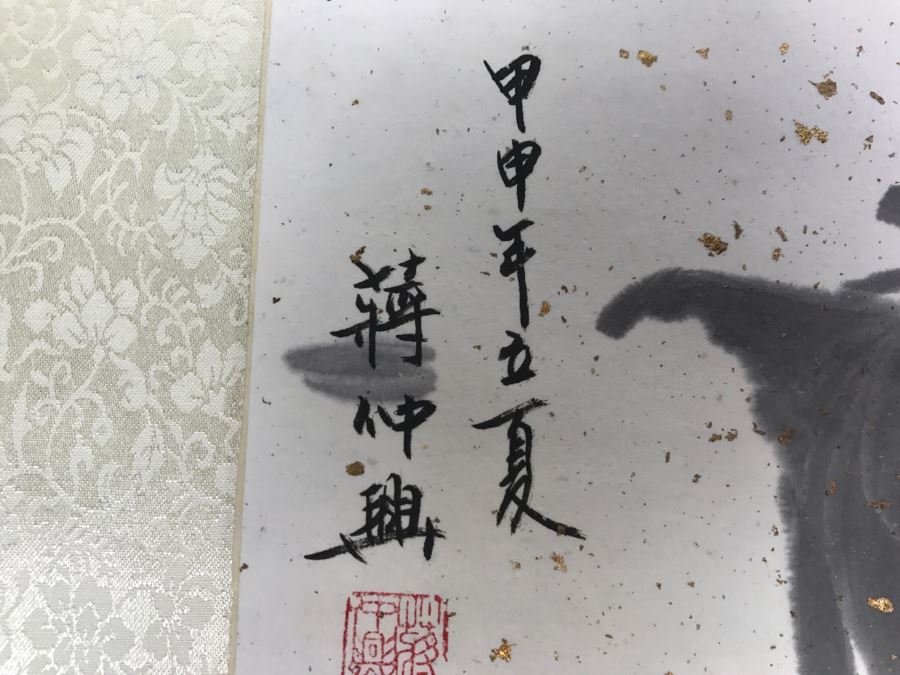 甲申年立夏
蔣仲興